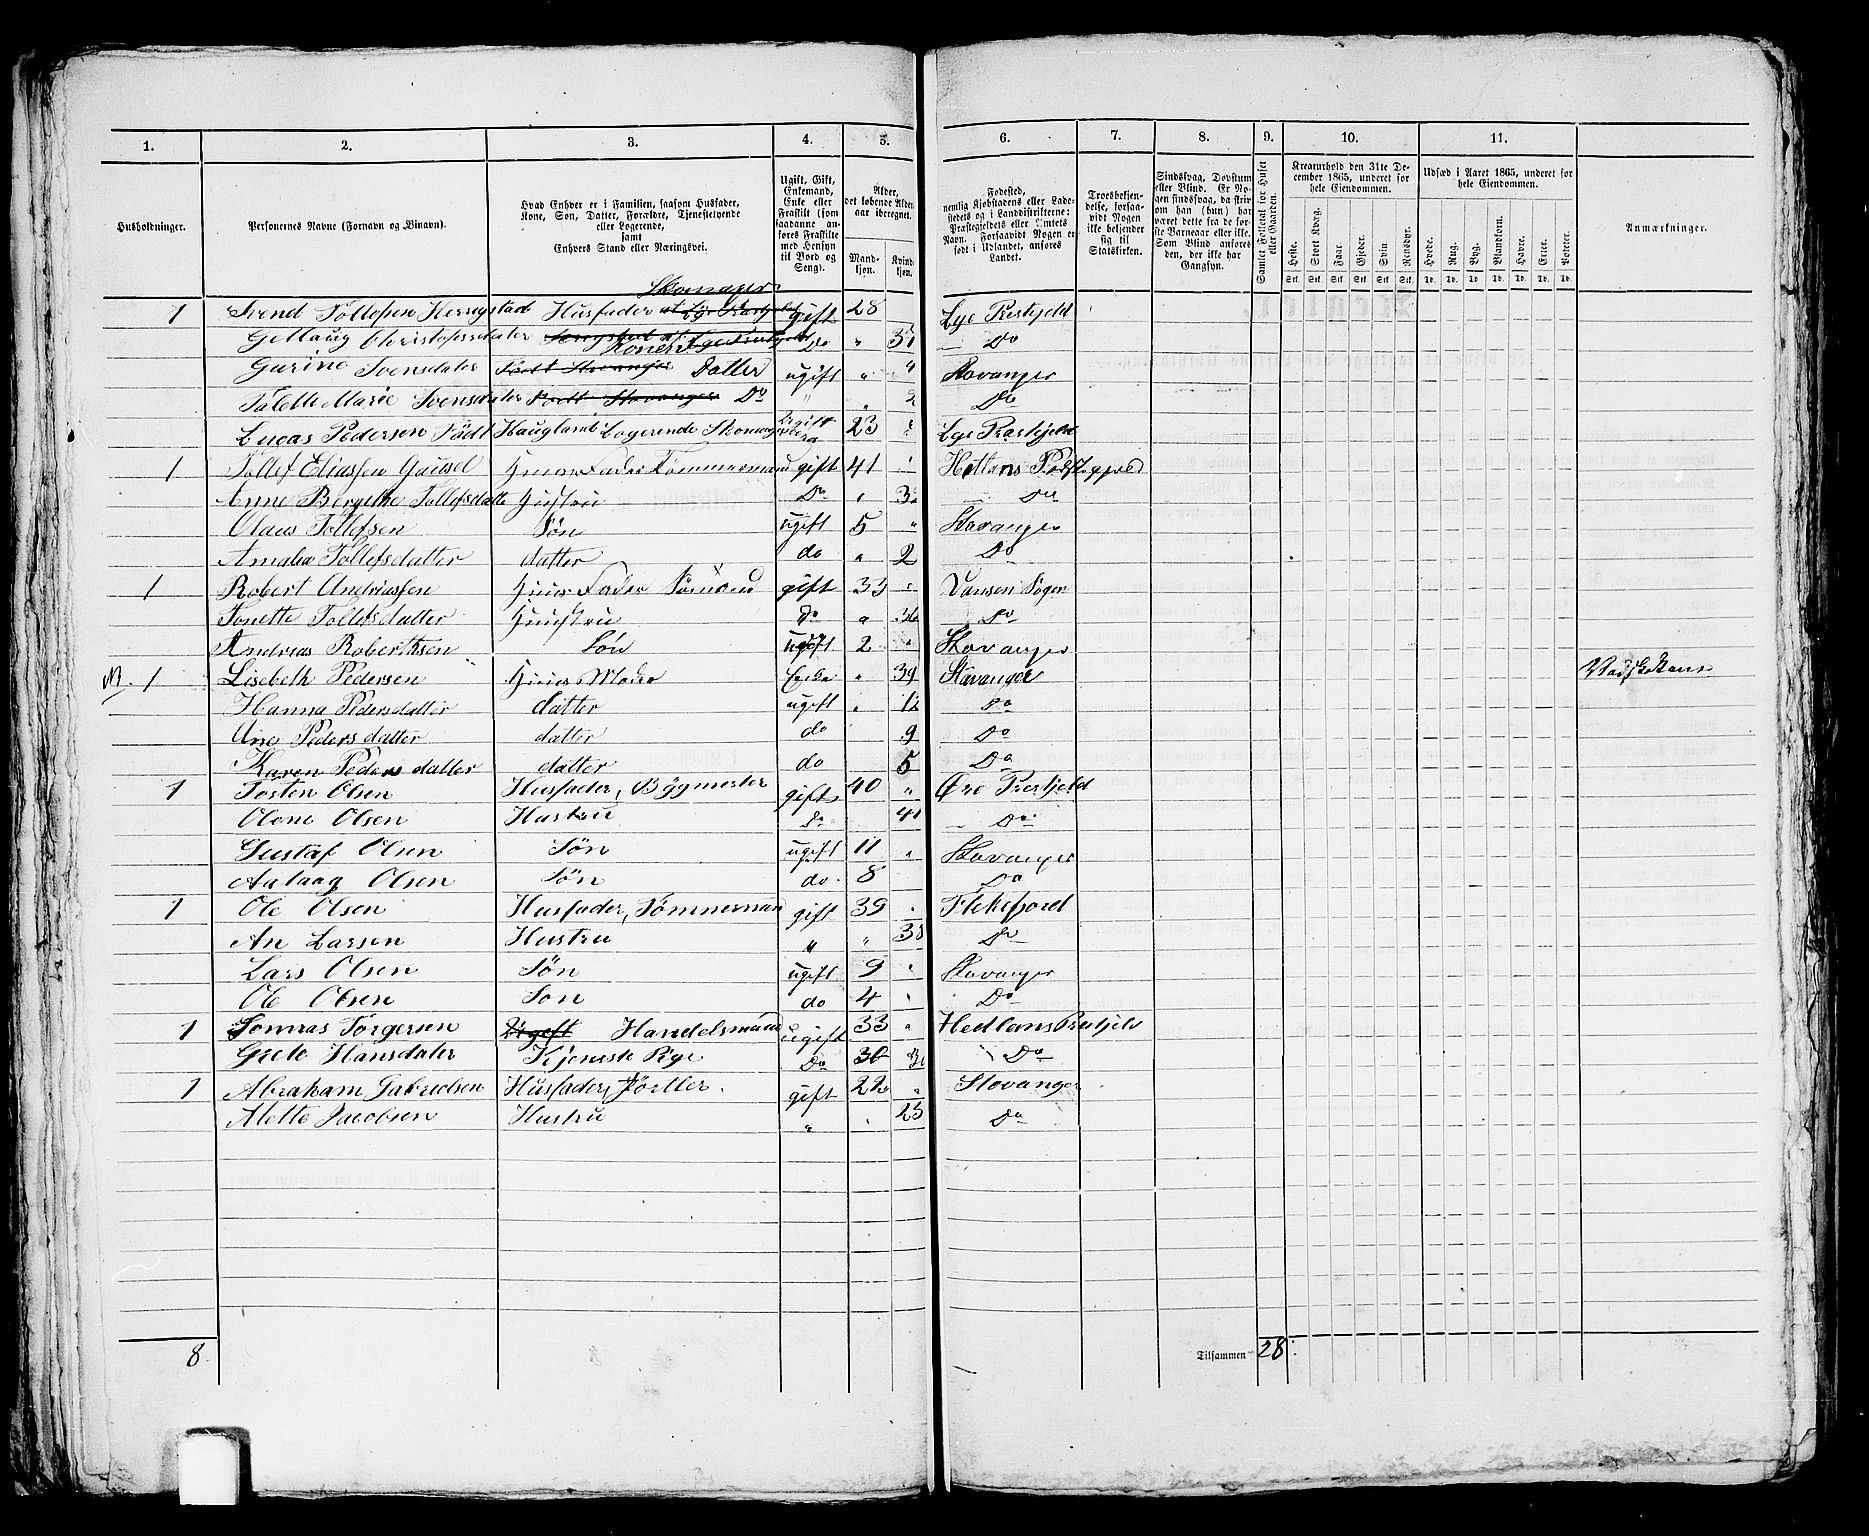 1. 2. 3. 4. 5. 6. 7. 8. 9. 10. 11.
Husholdninger. Personernes Navne (Fornavn og Binavn). Hvad Enhver er i Familien, saasom Husfader, Kone, Søn, Datter, Forældre, Tjenestetyende eller Logerende, samt Enhvers Stand eller Næringsvei. Ugift, Gift, Enkemand, Enke eller Fraskilt (som saadanne anføres Fraskilte med Hensyn til Bord og Seng). Alder, det løbende Alders aar iberegnet. Mandkjøn. Kvindekjøn. Fødested, nemlig Kjøbstadens eller Ladestedets og i Landdistrikterne: Præstegjeldets eller Sognets Navn. Forsaavidt Nogen er født i Udlandet, anføres Landet. Troesbekjendelse, forsaavidt Nogen ikke bekjender sig til Statskirken. Sindssvag, Døvstum eller Blind. Er Nogen sindssvag, da skrives om han (hun) har været dette fra de første Barneaar eller ikke. Som Blind anføres den, der ikke har Gangsyn. Samlet Folketal for Huset eller Gaarden. Kreaturhold den 31te December 1865, underet for hele Eiendommen. Udsæd i Aaret 1865, underet for hele Eiendommen. Anmærkninger.
Heste. Stort Kvæg. Faar. Gjeder. Svin Rensdyr. Hvede. Rug. Byg. Blandkorn. Havre. Erter. Poteter.
Stk. Stk. Stk. Stk. Stk. Stk. Td. Td. Td. Td. Td. Td. Td.
Skomager
1 Svend Tollefsen Herregstad Husfader gift 28 Lye Prestjeld
Christofersdater Kone Do " Do
Gurine Svensdater Født Stavanger Datter ugift " " Stavanger
Tolette Marie Svensdater Født Stavanger Do " " 2 Do
Lucas Pedersen Født Haugland Logerende 23 " Lye Prestjeld
1 Tollef Eliassen Gausel Huus Fader Tømmermand gift 41 "
Anne Bergithe Tollefsdatter Hustru Do " Do
Olaus Tollefsen Søn ugift 5 " Stavanger
Amalia Tollefsdatter datter do " 2 Do
1 Robert Andriassen Huus Fader Sømand gift 33 " Vansen Sogen
Tonette Tollefsdatter Hustru Do " 36 Do
Andrias Roberthsen Søn ugift 2 " Stavanger
1 Lisebeth Pedersen Huus Moder Enke " 39 Stavanger
Hanna Pedersdatter datter ugift " 12 Do
Ane Pedersdatter datter do 9 Do
Karen Pedersdatter datter do 5 Do
1 Tosten Olsen Husfader, Bÿgmester gift 40 " Øre Prestjeld
Olene Olsen Hustru Do Do
Gustaf Olsen Søn ugift 11 " Stavanger
Aslaag Olsen Søn do 8 Do
1 Ole Olsen Husfader, Tømmermand gift 39 " Flekefjord
An Larsen Hustru " " 38 Do
Lars Olsen Søn ugift 9 " Stavanger
Ole Olsen Søn do 4 " Do
1 Tomras Torgersen Ugeft Handelsmand ugift 33 " Hedlans Prestjeld
Grete Hansdater Tjeneste Pige Do 30 Do
1 Abraham Gabrielsen Husfader, gift 22 " Stavanger
Alette Jacobsen Hustru " " 23 Do
8 Tilsammen 28